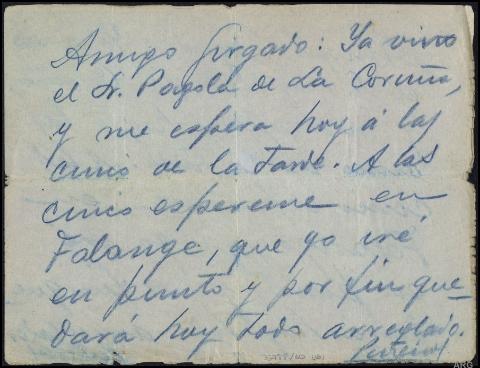 Amigo Girgado: Ya vino
el Sr. Pagola de La Coruña,
y me espera hoy á las
cinco de la tarde. A las
cinco espereme en
Falange, que yo iré
en punto y por fin que-
dará hoy todo arreglado.
ARG